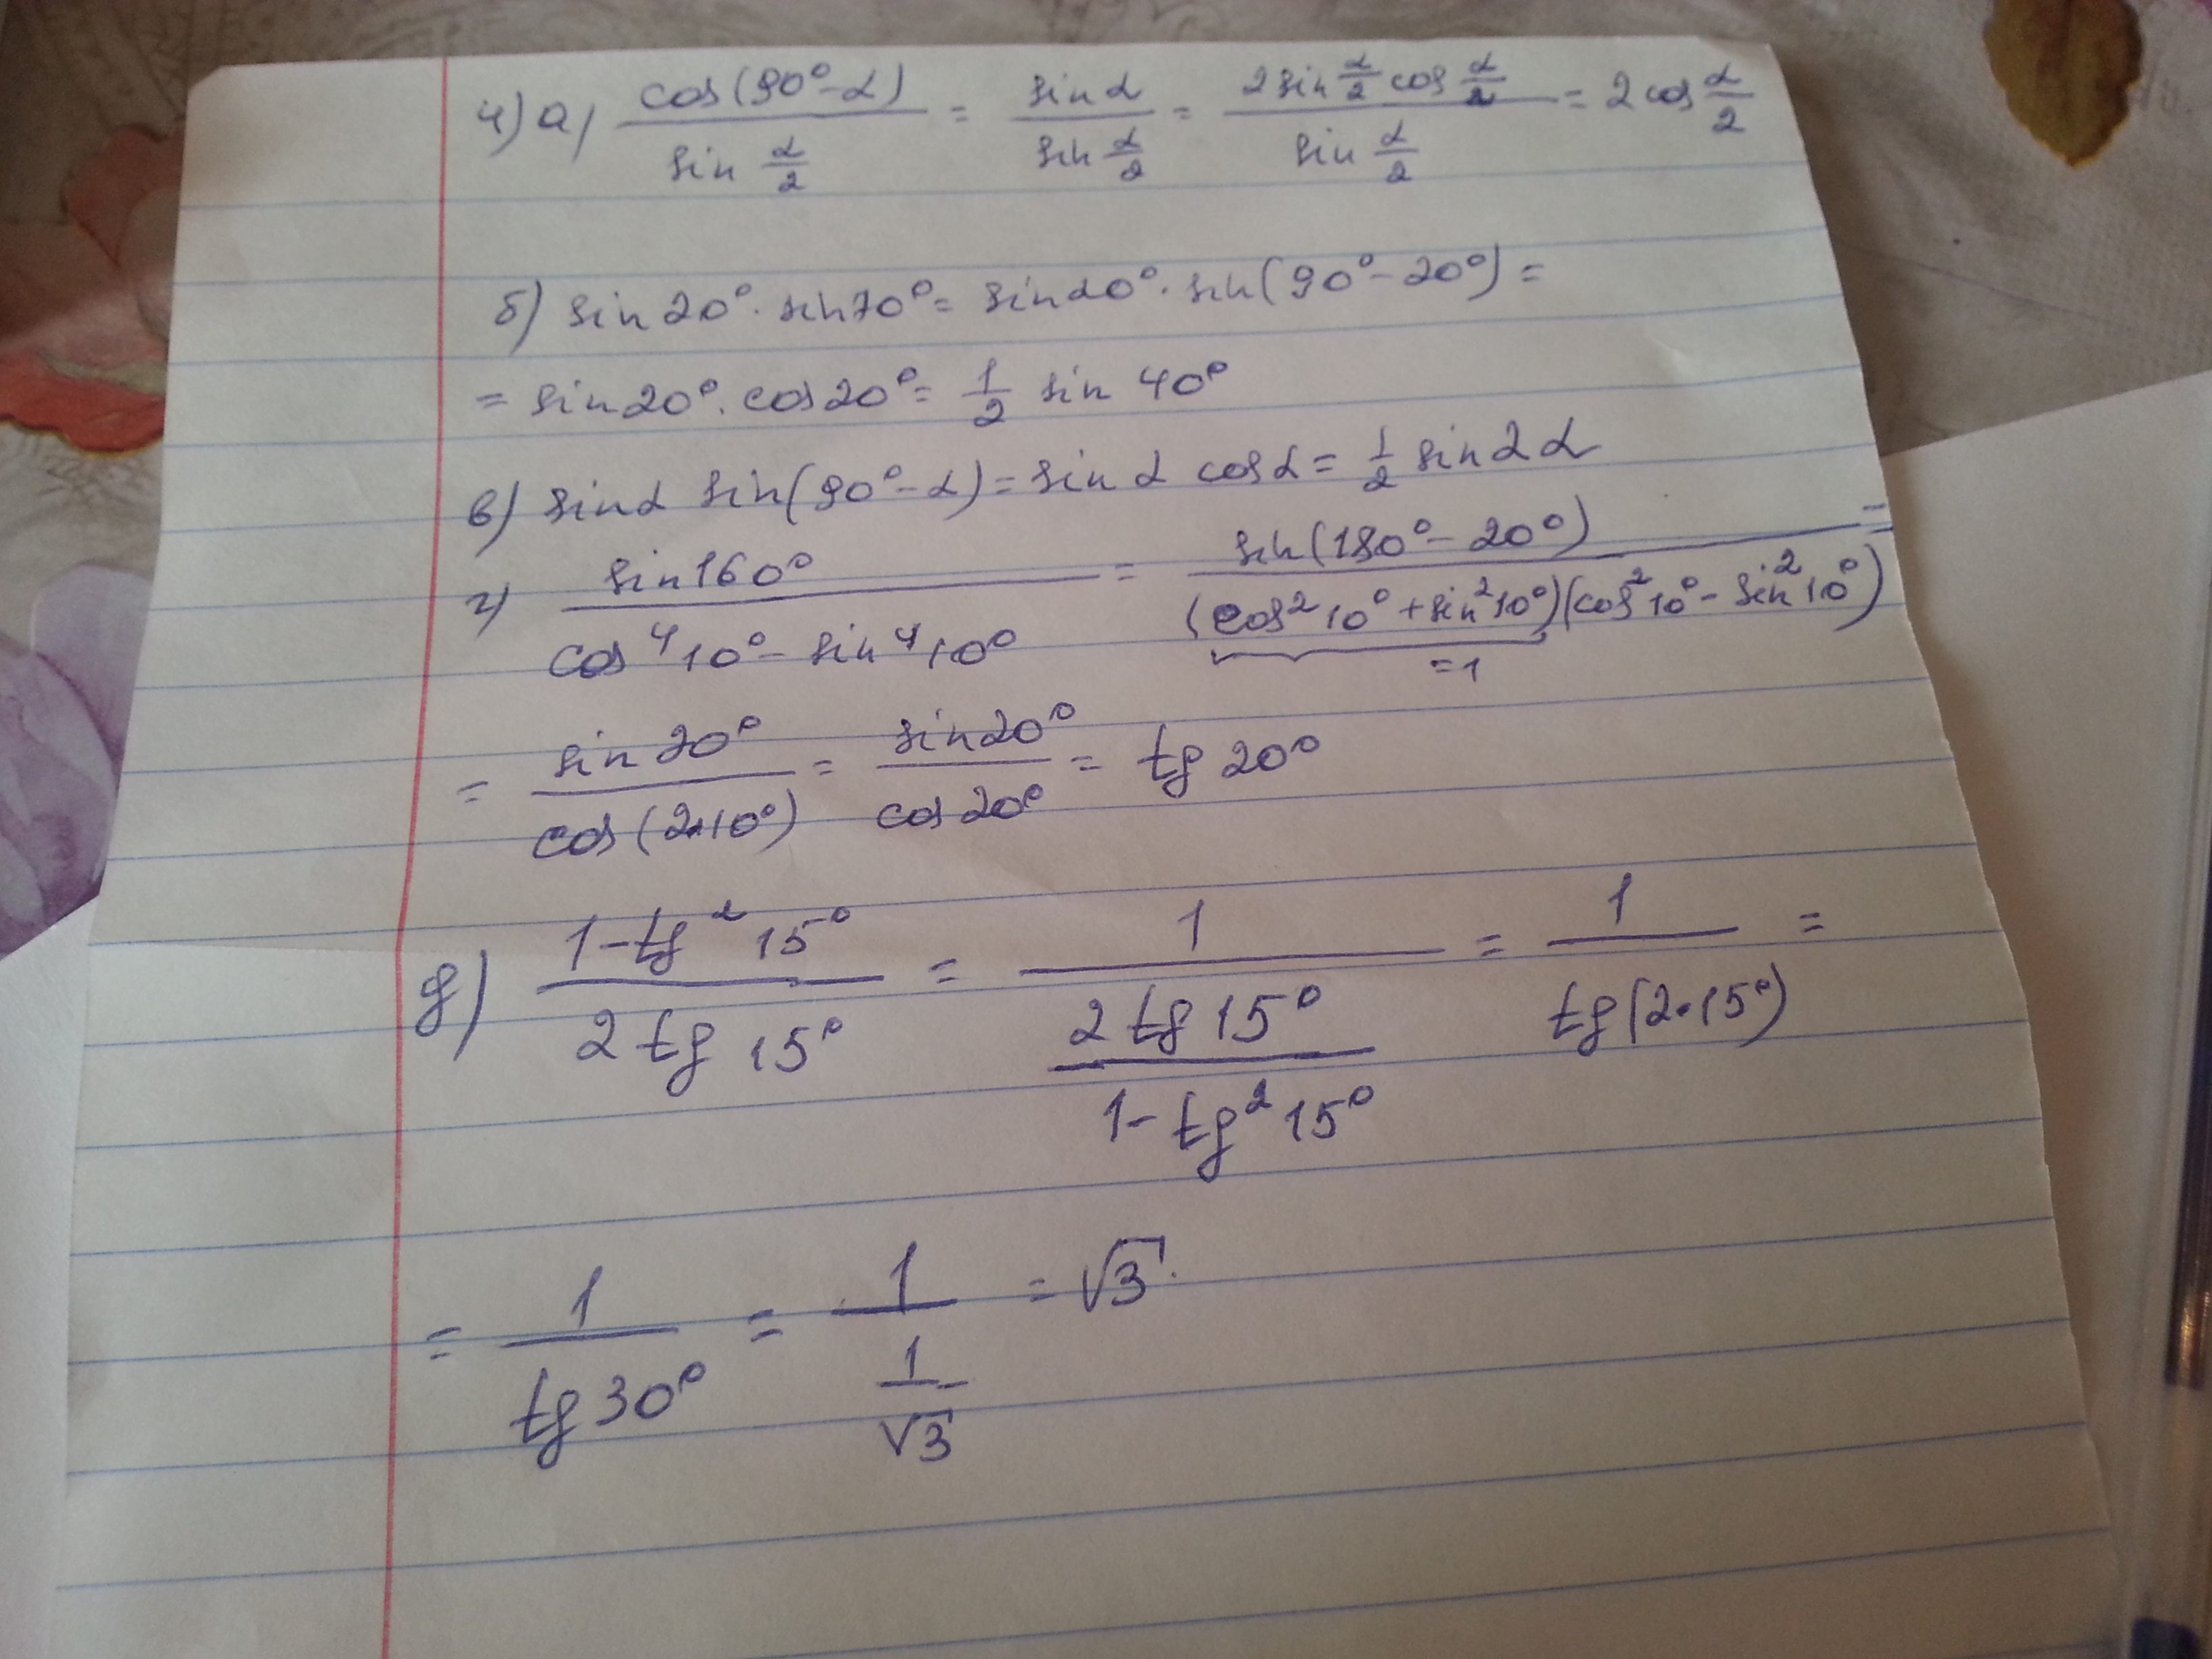 4) а) cos(90°-α)/sin α/2 = sin α/sin α/2 = 2 sin α/2 cos α/2/sin α/2 = 2 cos α/2
б) sin 20° · sin 70° = sin 20° · sin(90° - 20°) =
= sin 20° · cos 20° = 1/2 sin 40°
в) sin α sin(90° - α) = sin α cos α = 1/2 sin 2α
г) sin 160°/cos⁴ 10° - sin⁴ 10° = sin(180° - 20°)/(cos² 10° + sin² 10°)(cos² 10° - sin² 10°) =
=1
= sin 20°/cos(2·10°) = sin 20°/cos 20° = tg 20°
д) 1 - tg² 15°/2 tg 15° = 1/2 tg 15°/1 - tg² 15° = 1/tg(2·15°) =
= 1/tg 30° = 1/1/√3 = √3.